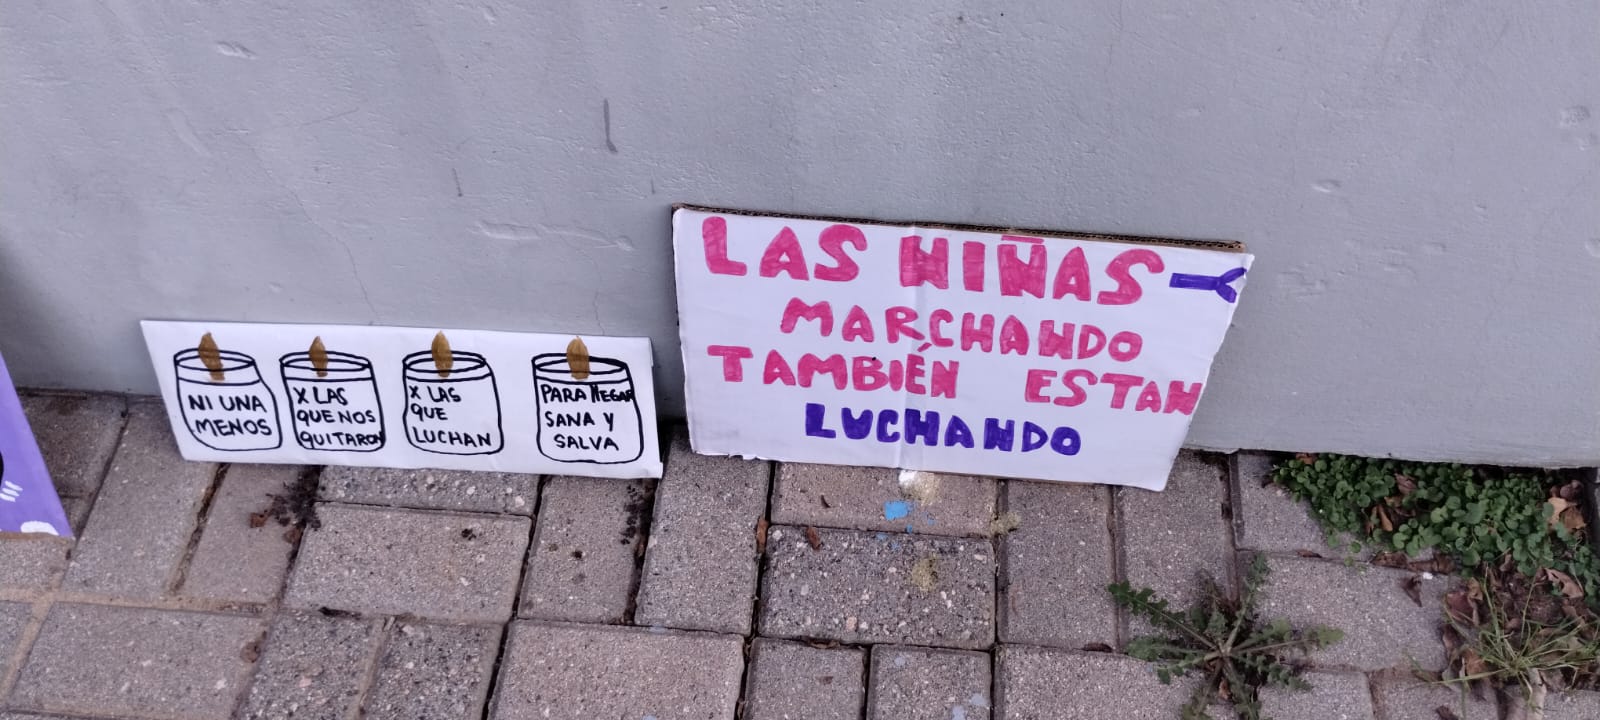 NI UNA
MENOS
X LAS
QUE NOS
QUITARON
X LAS
QUE
LUCHAN
PARA llEGAR
SANA Y
SALVA
LAS NIÑAS
MARCHANDO
TAMBIÉN ESTAN
LUCHANDO